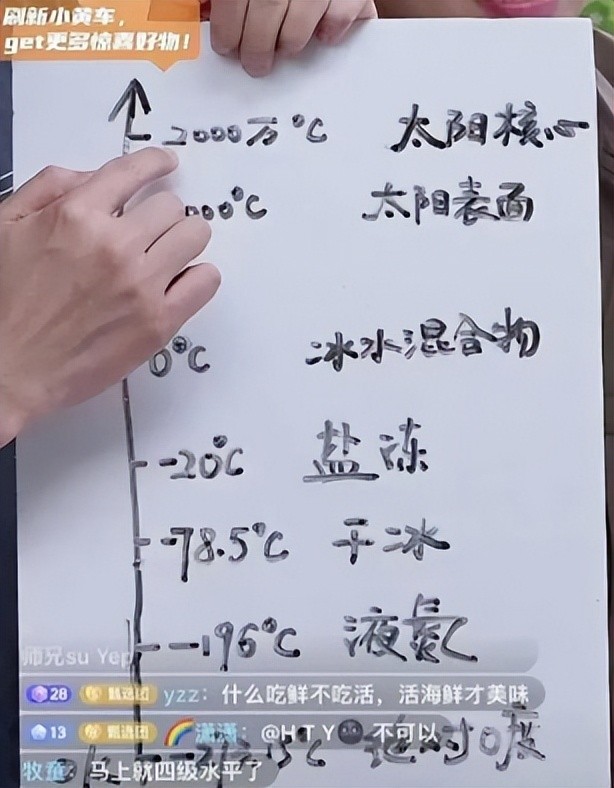 刷新小黄车,
get更多惊喜好物!
2000万°C 太阳核心
000°C 太阳表面
0°C 冰水混合物
-20°C 盐冻
-78.5°C 干冰
-196°C 液氮
师兄su Yep
28 甄选团 yzz: 什么吃鲜不吃活，活海鲜才美味
13 甄选团 潇潇: @H T Y 不可以
15°C 绝对0度
牧童: 马上就四级水平了